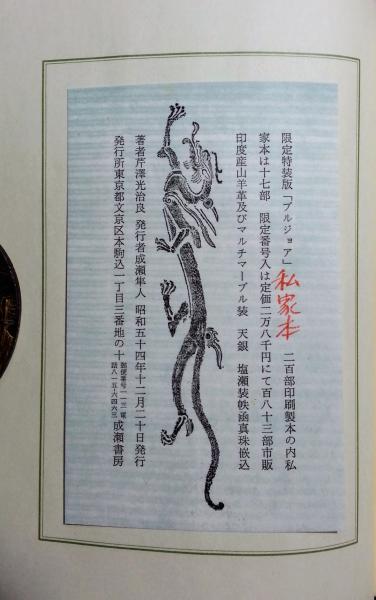 限定特装版「ブルジョア」 二百部印刷製本の内私
私家本
家本は十七部 限定番号入は定価二万八千円にて百八十三部市販
印度産山羊革及びマルチマーブル装 天銀 塩瀬装帙函真珠嵌込
著者芹澤光治良 発行者成瀬隼人 昭和五十四年十二月二十日発行
発行所東京都文京区本駒込一丁目三番地の十 成瀬書房